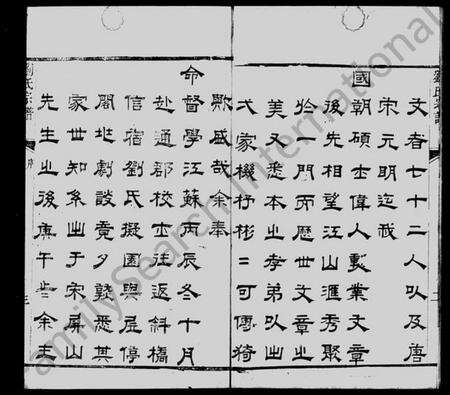 文者七十二人以及唐
宋元明迄我
國朝碩士偉人勳業文章
後先相望江山滙秀聚
於一門而歷世文章之
美又悉本之孝弟以出
弌家機杼彬二可傳猗
歟盛哉余奉
命督學江蘇丙辰冬十月
赴通郡校士往返斜橋
信宿劉氏擬園與居停
閣地劇談竟夕聽悉其
家世知系出于宋屏山
先生之後庚午余主
劉氏宗譜
FamilySearch International